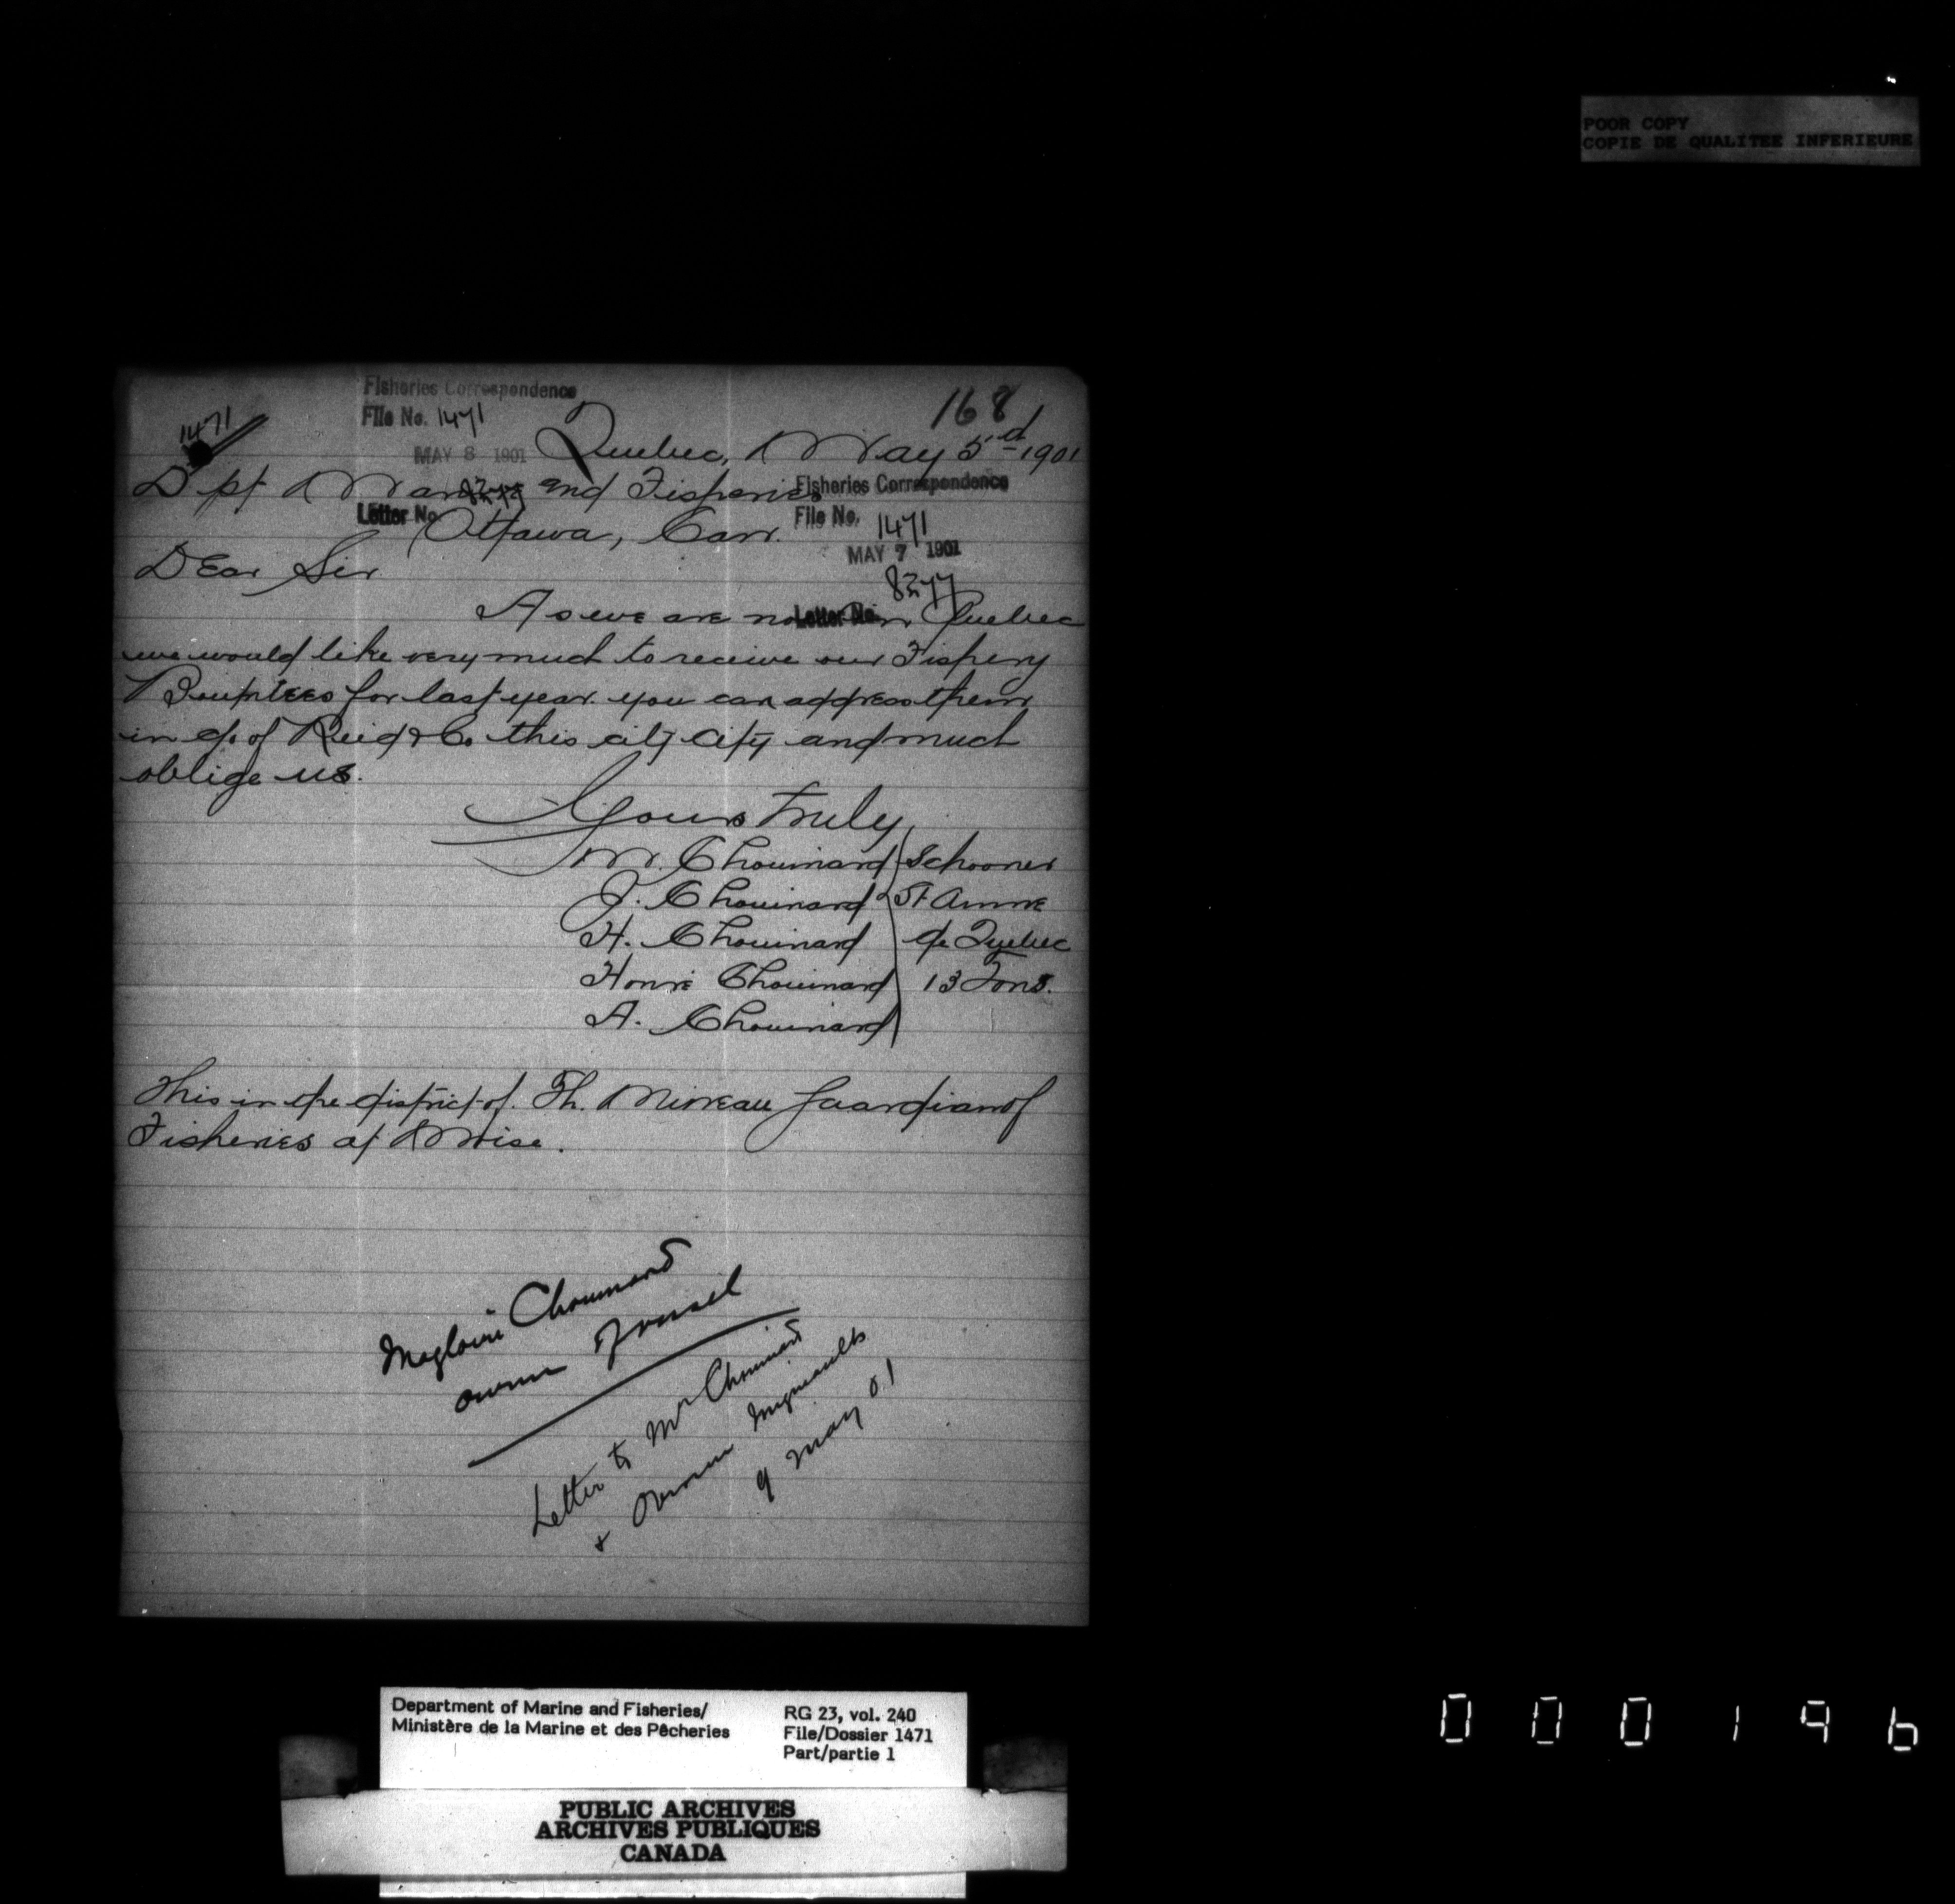 POOR COPY
COPIE DE QUALITEE INFERIEURE
Fisheries Correspondence
File No. 1471
MAY 8 1901
8277
Letter No.
1471
168
Quebec, May 5d 1901
Dpt Marine and Fisheries
Ottawa, Can.
Fisheries Correspondence
File No. 1471
MAY 7 1901
8277
Letter No.
DEar Sir
As we are now in Quebec
we would like very much to receive our Fishery
Bounties for last year. you can address them
in c/o of Reid & Co this city city and much
oblige us.
Yours truly
M. Chouinard Schooner
J. Chouinard St Anne
H. Chouinard de Quebec
Honré Chouinard 13 Tons.
A. Chouinard
This in the district of. Th. Mireau Guardian of
Fisheries at Moise.
Magloire Chouinard
owner of vessel
Letter to Mr Chouinard
& Overseer Migneault
9 May 01
Department of Marine and Fisheries/
Ministère de la Marine et des Pêcheries
RG 23, vol. 240
File/Dossier 1471
Part/partie 1
PUBLIC ARCHIVES
ARCHIVES PUBLIQUES
CANADA
000196